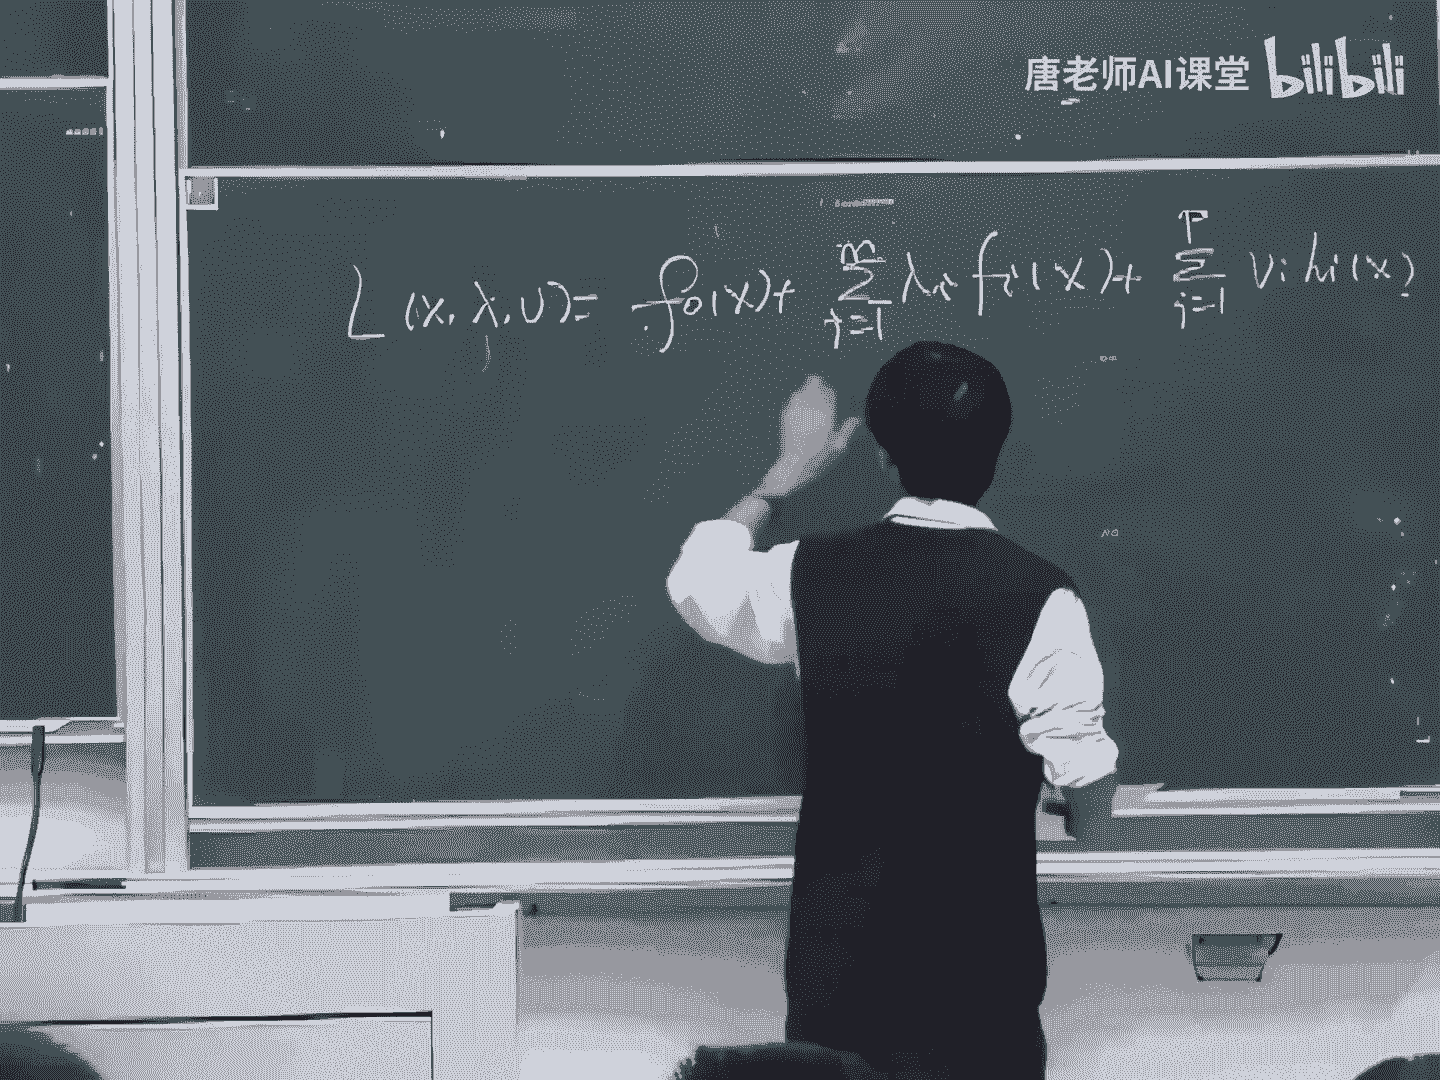 唐老师AI课堂 bilibili
L(x, λ, υ) = f₀(x) + ∑ᵢ₌₁ᵐ λᵢ fᵢ(x) + ∑ᵢ₌₁ᵖ υᵢ hᵢ(x)